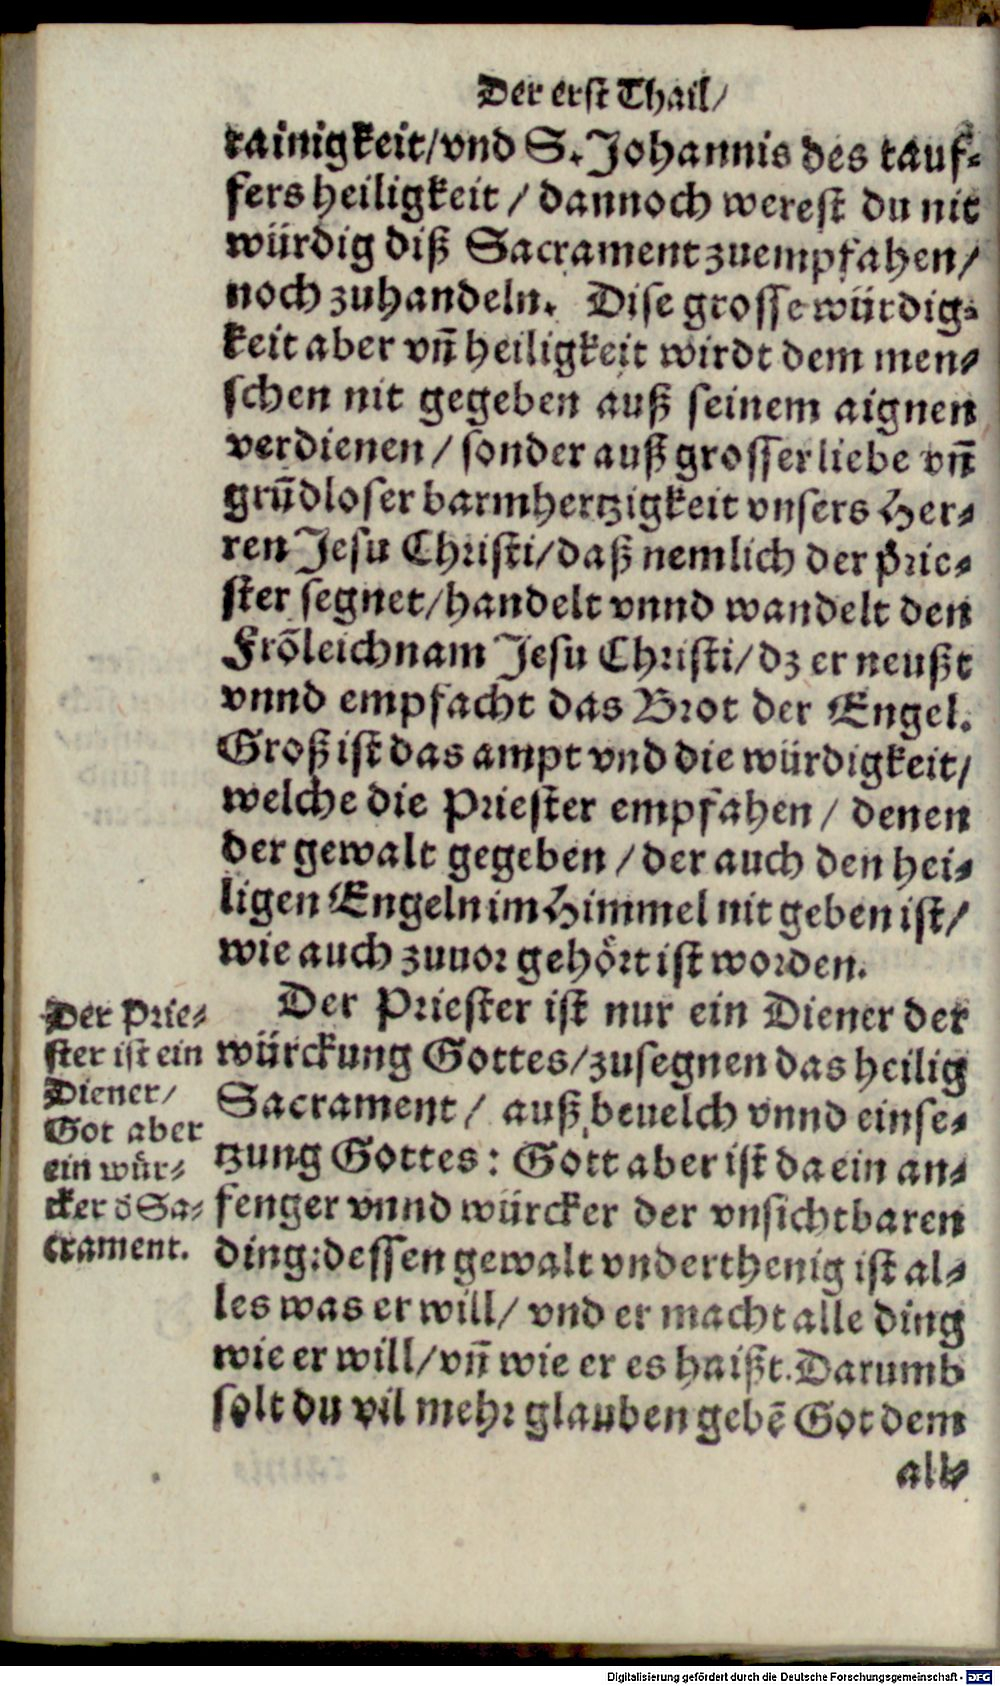 Der erst Thail/
rainigkeit/vnd S. Johannis des tauf-
fers heiligkeit / dannoch werest du nit
würdig diß Sacrament zuempfahen/
noch zuhandeln. Dise grosse würdig-
keit aber vñ heiligkeit wirdt dem men-
schen nit gegeben auß seinem aignen
verdienen / sonder auß grosser liebe vñ
grũdloser barmhertzigkeit vnsers Her-
ren Jesu Christi/daß nemlich der Prie-
ster segnet/handelt vnnd wandelt den
Frõleichnam Jesu Christi/dz er neußt
vnnd empfacht das Brot der Engel.
Groß ist das ampt vnd die würdigkeit/
welche die Priester empfahen / denen
der gewalt gegeben / der auch den hei-
ligen Engeln im Himmel nit geben ist/
wie auch zuuor gehört ist worden.
Der Priester ist nur ein Diener der
würckung Gottes/zusegnen das heilig
Sacrament / auß beuelch vnnd einse-
tzung Gottes: Gott aber ist da ein an-
fenger vnnd würcker der vnsichtbaren
ding:dessen gewalt vnderthenig ist al-
les was er will/ vnd er macht alle ding
wie er will/vñ wie er es haißt. Darumb
solt du vil mehr glauben gebẽ Got dem
all-
Der Prie-
ster ist ein
Diener/
Got aber
ein wür-
cker d̕ Sa-
crament.
Digitalisierung gefördert durch die Deutsche Forschungsgemeinschaft - DFG